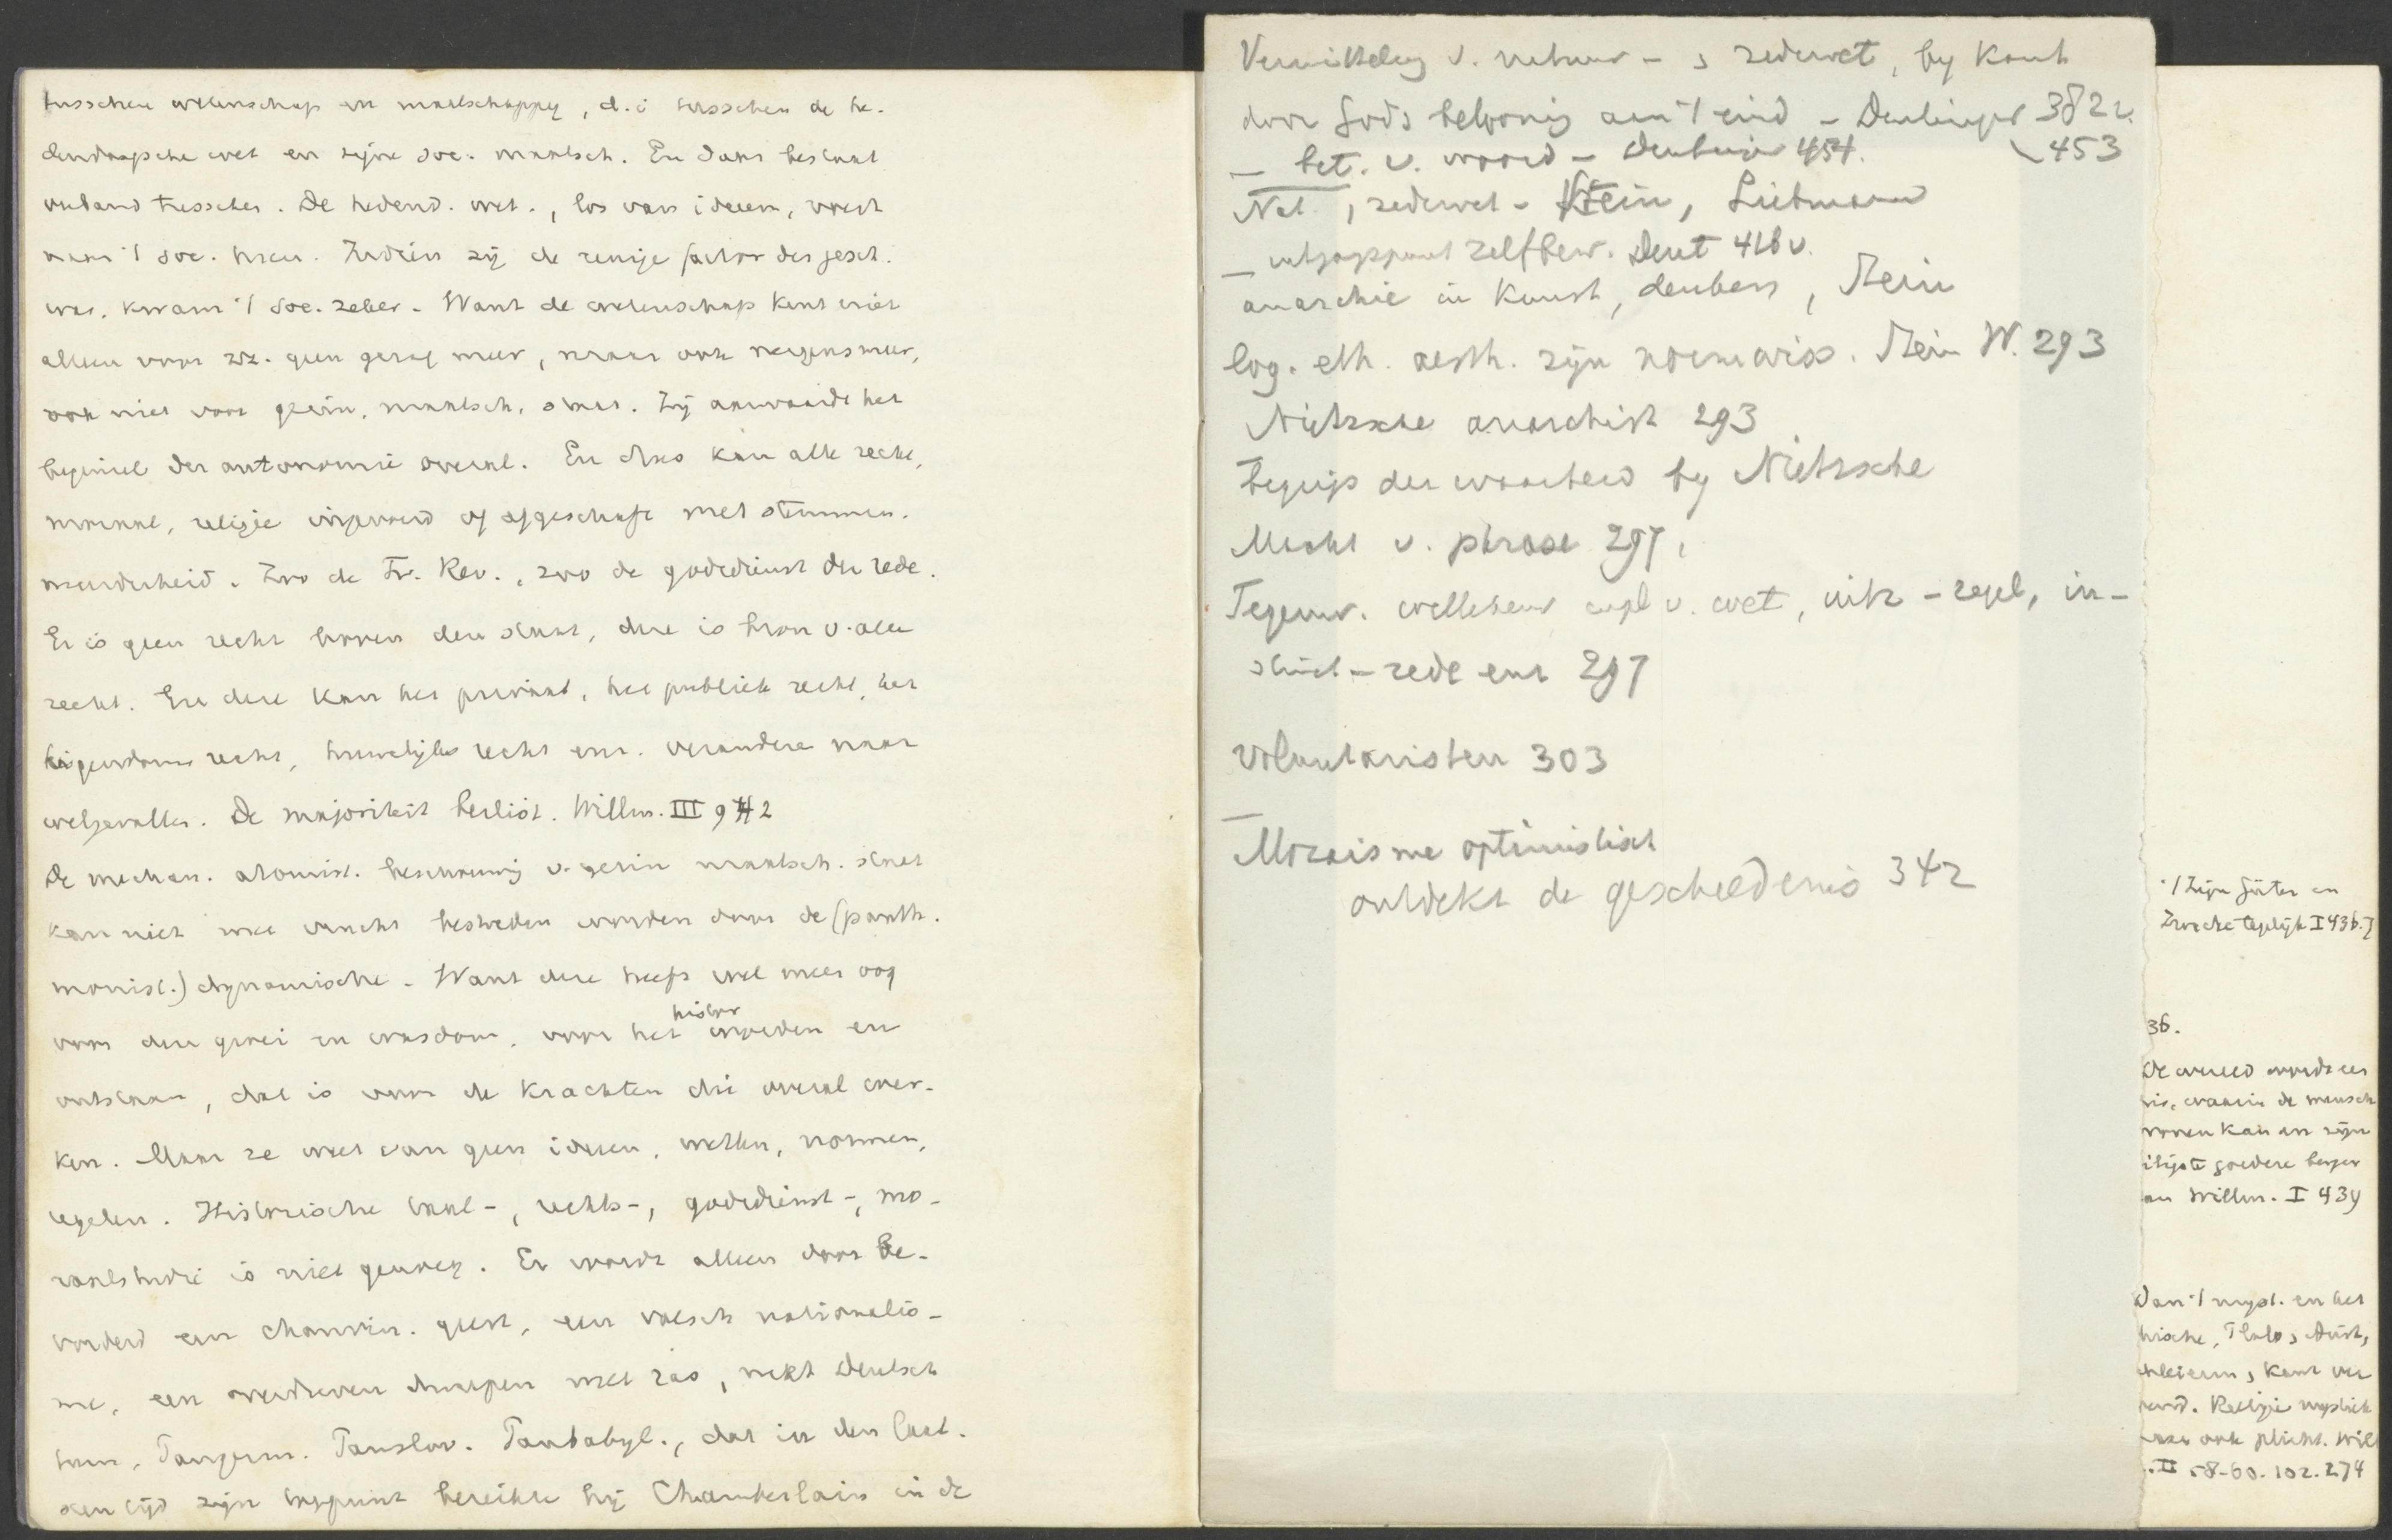 tusschen wetenschap en maatschappy, d.i tusschen de he-
dendaagsche wet en zijne soc. maatsch. En daar bestaat
verband tusschen. De hedend. wet., los van ideeen, voert
naar 't soc. heen. Indien zij de eenige factor der gesch.
was, kwam 't soc. zeker. Want de wetenschap kent niet
alleen voor zz. geen gezag meer, maar ook nergens meer,
ook niet voor gezin, maatsch, staat. Zij aanvaardt het
beginsel der autonomie overal. En dus kan alle recht,
moraal, religie ingevoerd of afgeschaft met stemmen-
meerderheid. Zoo de Fr. Rev., zoo de godsdienst der rede.
Er is geen recht boven den staat, deze is bron v. alle
recht. En deze kan het privaat, het publiek recht, het
eigendoms recht, huwelijks recht enz. veranderen naar
welgevallen. De majoriteit beslist. Willm. III 942
De mechan. atomist. beschouwing v. gezin maatsch. staat
kan niet met vrucht bestreden worden door de (panth.
monist.) dynamische. Want deze heeft wel meer oog
voor den groei en wasdom, voor het histor worden en
ontstaan, dat is voor de krachten die overal wer-
ken. Maar ze weet van geen ideeen, wetten, normen,
regelen. Historische taal-, rechts-, godsdienst-, mo-
raalstudie is niet genoeg. Er wordt alleen door be-
vorderd een chauvin. geest, een valsch nationalis-
me, een overdreven dweepen met ras, wekt Deutsch
tum, Pangerm. Panslav. Panbabyl., dat in den laat-
sten tijd zijn toppunt bereikte bij Chamberlain in de
Vermitteling v. natuur - , zedewet, by Kant
door Gods belooning aan 't eind - Deutinger 382v.
453
_ bet. v. woord - Deutinger 454.
Nat. , zedewet - Stein, Liebmann
_ uitgangspunt zelfbew. Deut 416v.
anarchie in Kunst, denken, Stein
log. eth. aesth. zijn normwiss. Stein W. 293
Nietzsche anarchist 293
begrip der waarheid by Nietzsche
Macht v. phrase 297,
Tegenw. wetten ipl v. wet, uitz - regel, in-
stinct - rede enz 297
Voluntaristen 303
_ Mozaisme optimistisch
ontdekt de geschiedenis 342
36.
De wereld wordt een
waarin de mensch
wonen kan en zijn
goedere
Willm. I 439
Dan 't myst. en het
Kant
Religie mystiek
ook plicht. Will
II 58-60. 102. 274